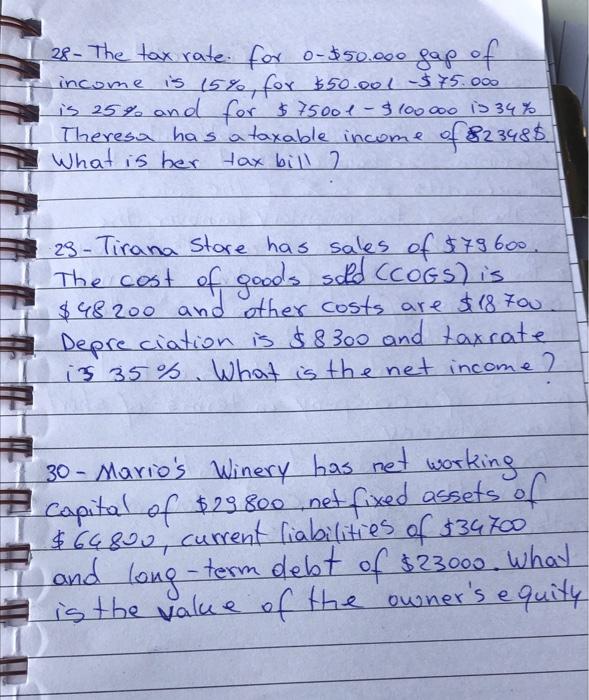 28- The tax rate. for 0-$50.000 gap of
income is 15%, for $50.001 -$75.000
is 25% and for $75001 - $100000 is 34%
Theresa has a taxable income of 82348$
What is her tax bill ?
29- Tirana Store has sales of $79600.
The cost of goods sold (COGS) is
$48200 and other costs are $18700.
Depreciation is $8300 and taxrate
is 35%. What is the net income?
30- Mario's Winery has net working
capital of $29800, net fixed assets of
$64800, current liabilities of $34700
and long-term debt of $23000. What
is the value of the owner's equity